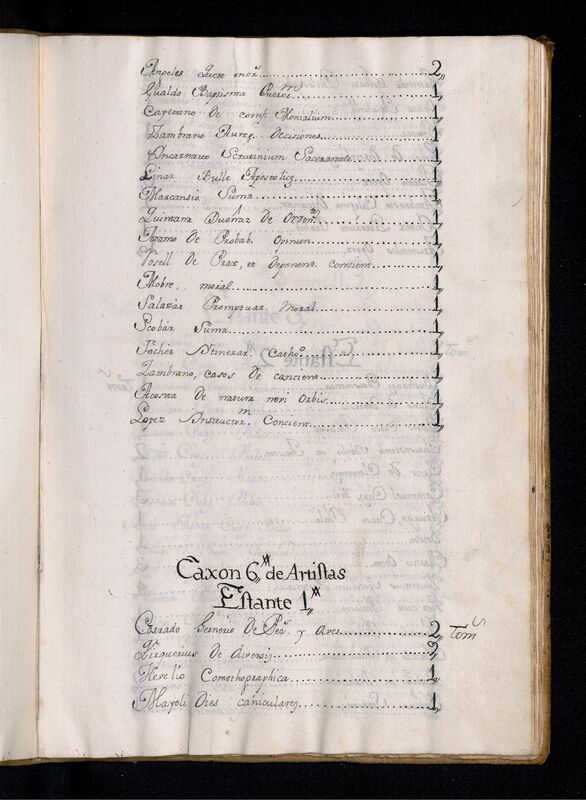 Angeles
Gualdo Baptisma Puero.m 1,,
Cayetano de conf. Monialium 1,,
Zambrano Decisiones 1,,
Encarnau Scrutinium Sacerdotale 1,,
Linar Bulle Apostolicę 1,,
Marcansio Suma 1,,
Quintana Dueñaz de 1,,
Aramo de Probab. Opinion. 1,,
Rosell de Prax. et Deponend. Concien. 1,,
Mobre, moral 1,,
Salazar Promptuar. Moral 1,,
Scobar Suma 1,,
Tocher Itinerar. Catho.o 1,,
Zambrano, casos de concienc. 1,,
Acosta de natura novi Orbis 1,,
Lopez Instructor.m Concient. 1,,
Caxon 6,,ª de Artistas
Estante 1,,ª
Conrado de y Aves 2,, Tom.s
de diversis
Hevelio Comethographica 1,,
Mayoli Dies caniculares 1,,